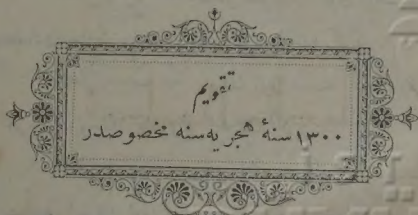 تقويم
١٣٠٠ سنۀ هجريه سنه مخصوصدر